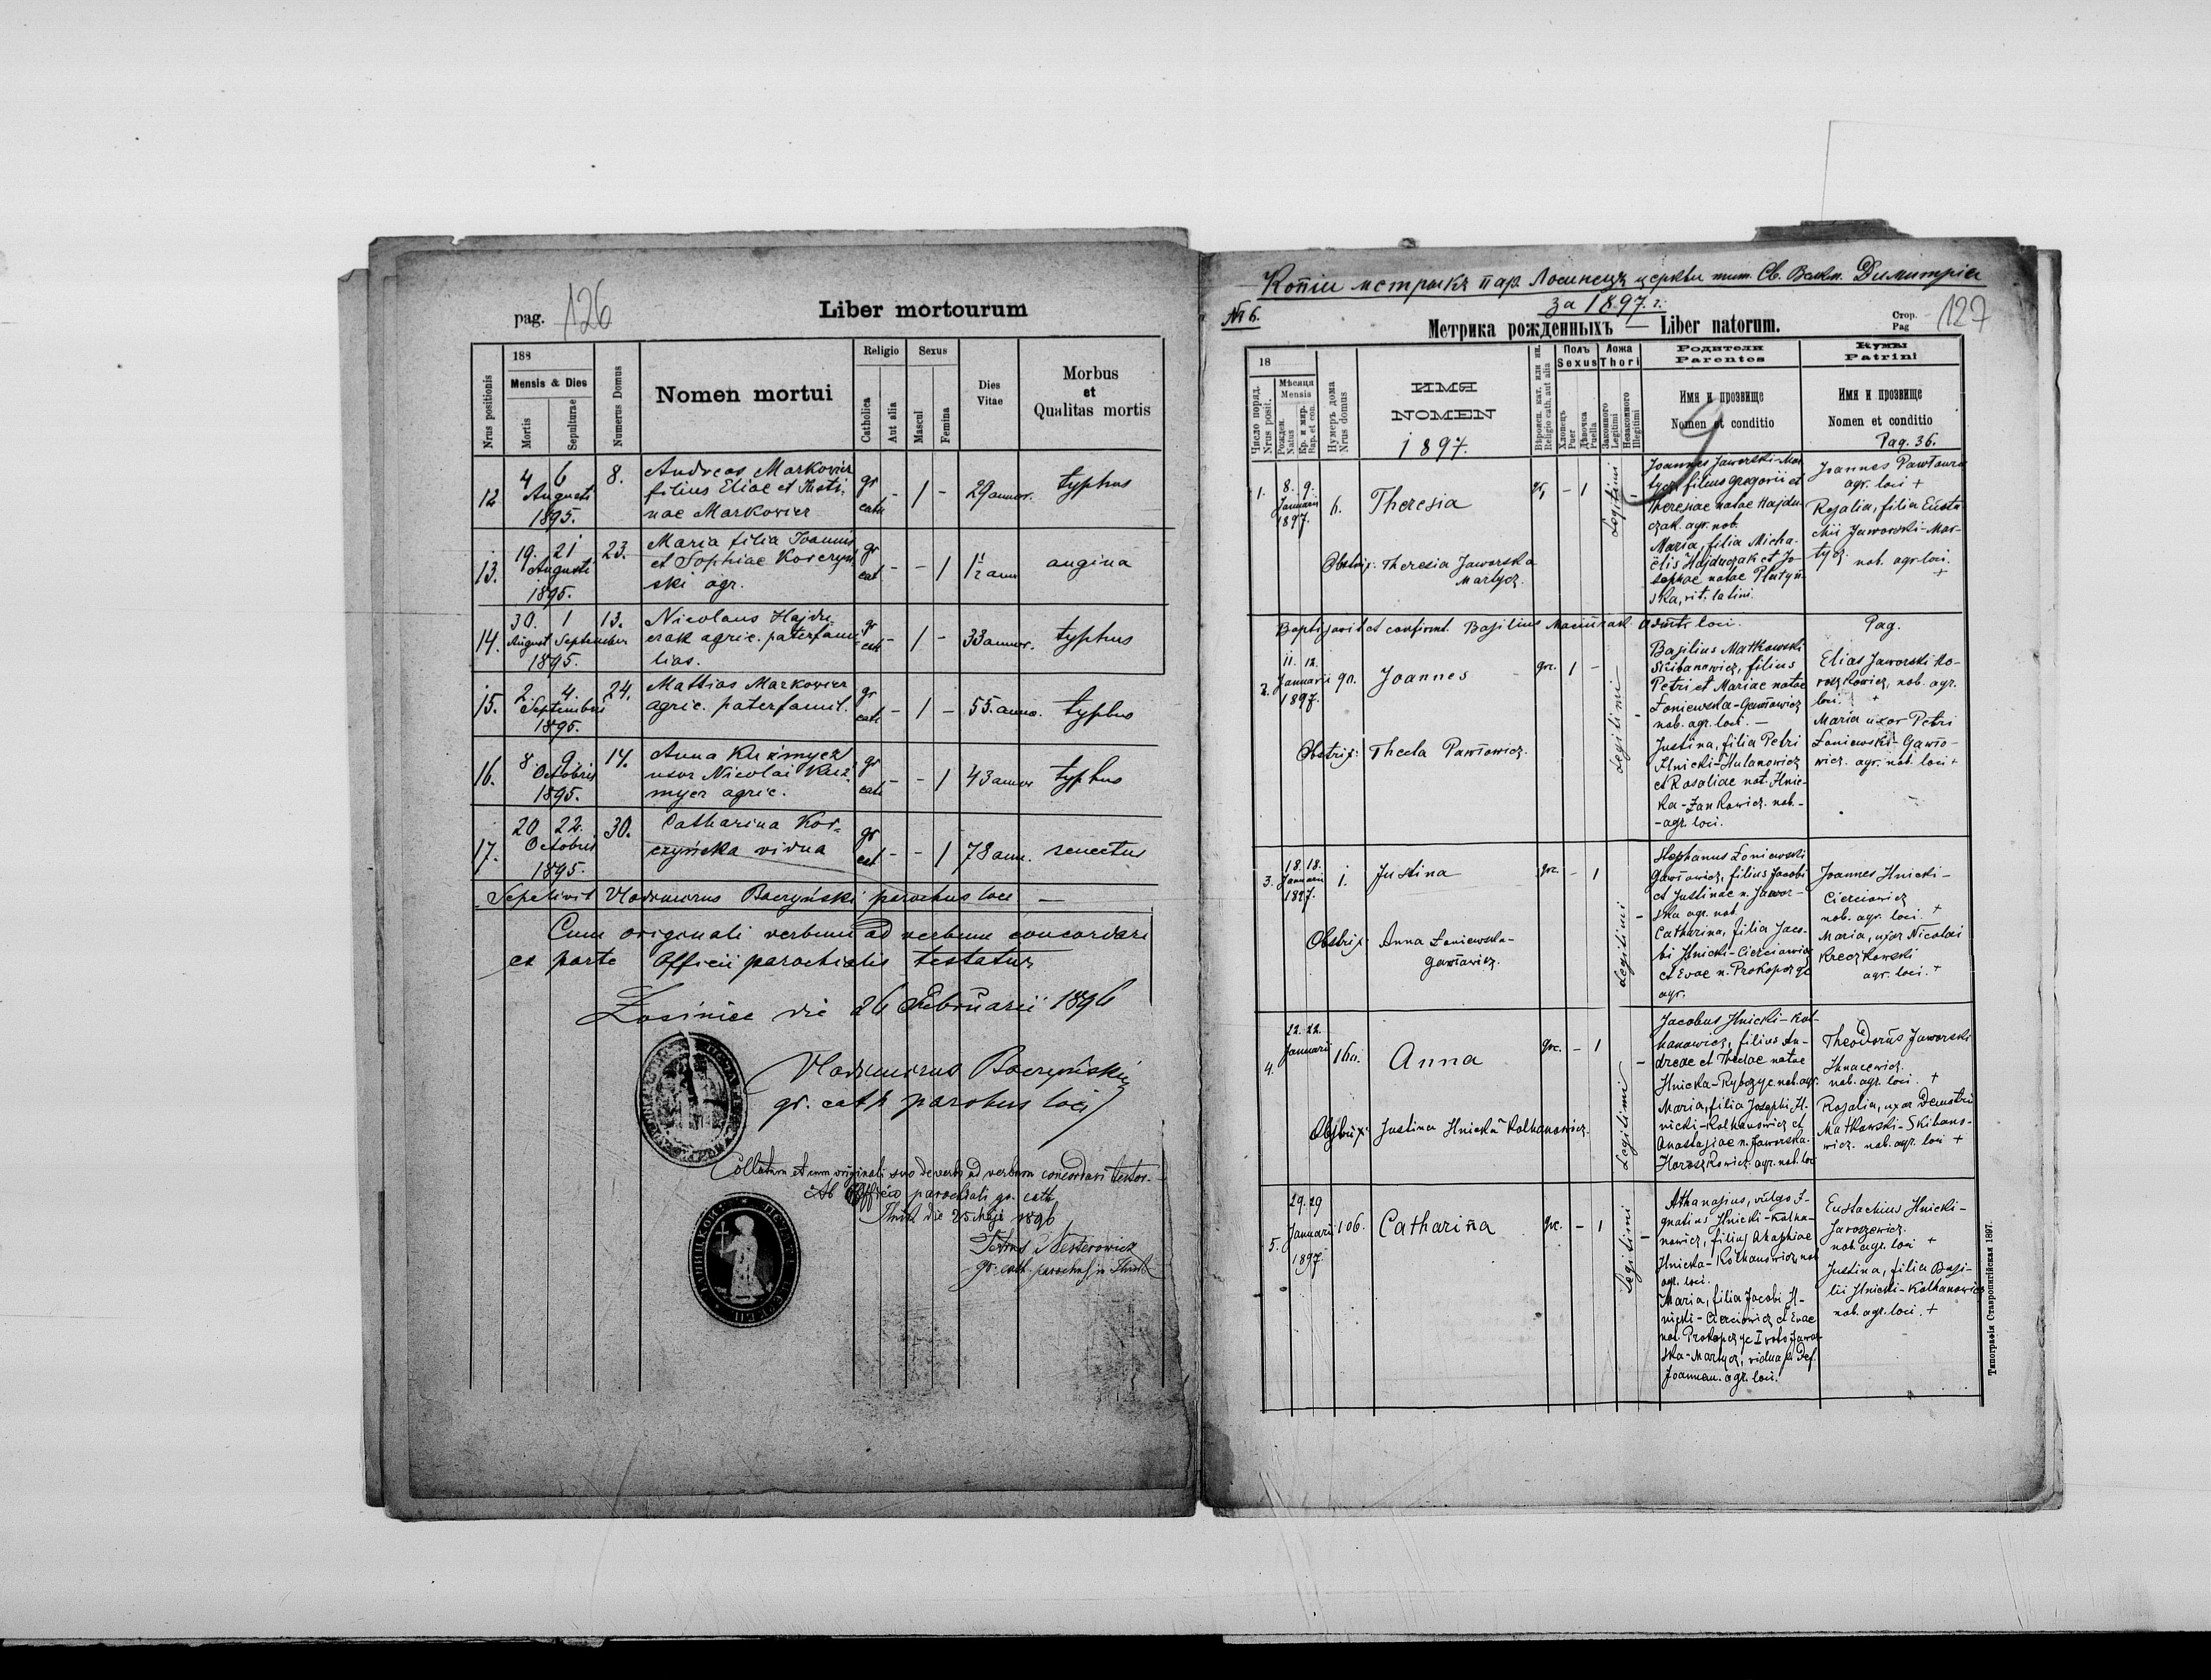 pag. 126
Liber mortourum
Nrus positionis
188
Mensis & Dies
Mortis
Sepulturae
Numerus Domus
Nomen mortui
Religio
Catholica
Aut alia
Sexus
Mascul
Femina
Dies
Vitae
Morbus
et
Qualitas mortis
12 4 6 8. Andreas Markovicz gr 1 29 annor. typhus
Augusti filius Eliae et Justi-
1895. nae Markovicz cath
13. 19. 21 23. Maria filia Joannis gr 1 1 1/2 ann angina
Augusti et Sophiae Korczyń
1895. ski agr. cat
14. 30. 1 13. Nicolaus Hajdu- gr 1 33 annor. typhus
August September czak agric. paterfami- cath
1895. lias.
15. 2. 4. 24. Mattias Markovicz gr 1 55. anno. typhus
Septembris agric. paterfamil. cath
1895.
16. 8 9. 14. Anna Kuźmycz gr 1 43 annor typhus
Octobris uxor Nicolai Kuź- cath
1895. mycz agric.
17. 20 22. 30. Catharina Kor- gr 1 78 ann. senectus
Octobris czyńska vidua cat
1895.
Sepelivit Vladimirus Baczyński parochus loci —
Cum originali verbum ad verbum concordare
ex parte Officii parochialis testatur
Łosiniec die 26 Februarii 1896
Vladimirus Baczyński
gr. cath parochus loci
Collatum et cum originali suo de verbo ad verbum concordari testor.
Ab Officio parochiali gr. cath
die 25 Maji 1896
Nesterowicz
gr. cath. parochus in
Копіи метрыкъ пар. Лосинецъ церкви тит. Св. Велкм. Димитрія
за 1897. г.
№ 6.
Метрика рожденныхъ — Liber natorum.
Стор.
Pag 127
18
Число поряд.
Nrus posit.
Мѣсяца
Mensis
Рожден.
Natus
Кр. и мир.
Bap. et con.
Нумеръ дома
Nrus domus
ИМЯ
NOMEN
1897.
Вѣроисп. кат. или ин.
Religio cath. aut alia
Полъ
Sexus
Хлопецъ
Puer
Дѣвочка
Puella
Ложа
Thori
Законного
Legitimi
Незаконного
Illegitimi
Родители
Parentes
Имя и прозвище
Nomen et conditio
Кумы
Patrini
Имя и прозвище
Nomen et conditio
Pag. 36.
1. 8. 9. Januarii 1897. 6. Theresia 1 Legitimi
Obstrix: Theresia Jaworska
Martycz.
Joannes Jaworski-Mar
tycz, filius Gregorii et
Theresiae natae Hajdu-
czak. agr. nob.
Maria, filia Micha-
ëlis Hajduczak et Jo-
sephae natae Płutyń-
ska, rit. latini.
Joannes
agr. loci +
Rosalia, filia Eusta
chii Jaworski-Mar-
tycz nob. agr. loci.
+
Baptisavit et confirmt. Basilius loci.
Pag.
2. 11. 12. Januarii 1897. 90. Joannes grc. 1 - Legitimi
Obstrix: Thecla Pawłowicz.
Basilius Matkowski
Skibanowicz, filius
Petri et Mariae natae
Łoniewska-Gawłowicz
nob. agr. loci. —
Justina, filia Petri
Ilnicki-Hulanowicz
et Rosaliae nat. Ilnic-
ka-Jankowicz. nob.-
-agr. loci.
Elias Jaworski Ho-
roszkowicz, nob. agr.
loci. +
Maria uxor Petri
Łoniewski-Gawło-
wicz. agr. nob. loci +
3. 18. 18. Januarii 1897. 1. Justina grc. - 1 Legitimi
Obstrix: Anna Łoniewska-
Gawłowicz.
Stephanus Łoniewski
Gawłowicz, filius Jacobi
et Justinae n. Jawor-
ska agr. nob.
Catharina, filia Jaco-
bi Ilnicki-Cierciowicz
et Evae n. Prokopczyc
agr.
Joannes Ilnicki-
Cierciowicz
nob. agr. loci. +
Maria, uxor Nicolai
Kreczkowski
agr. loci. +
4. 22. 22. Januarii 16a. Anna grc. - 1 Legitimi
Obstrix: Justina Ilnicka Kolhanowicz.
Jacobus Ilnicki-Kol-
hanowicz, filius An-
dreae et Theclae natae
Ilnicka-Rybczyc nob. agr.
Maria, filia Josephi Il-
nicki-Kolhanowicz et
Anastasiae n. Jaworska-
Horoszkowicz. agr. nob. loci
Theodorus Jaworski
Ihnacewicz.
nob. agr. loci. +
Rosalia, uxor Demetrii
Matkowski-Skibano-
wicz. nob. agr. loci +
5. 29. 29 Januarii 1897. 106. Catharina grc. - 1 Legitimi
Athanasius, vulgo I-
gnatius Ilnicki-Kolha-
nowicz, filius Ahaphiae
Ilnicka-Kolhanowicz, nob
agr. loci.
Maria, filia Jacobi Il-
nicki-Cierciowicz et Evae
nat. Prokopczyc I voto Jawor
ska-Martycz, vidua p. def.
Joannem. agr. loci.
Eustachius Ilnicki-
Jaroszewicz.
nob. agr. loci +
Justina, filia Basi-
lii Ilnicki-Kolhanowicz
nob. agr. loci. +
Типографія Ставропигійская 1897.